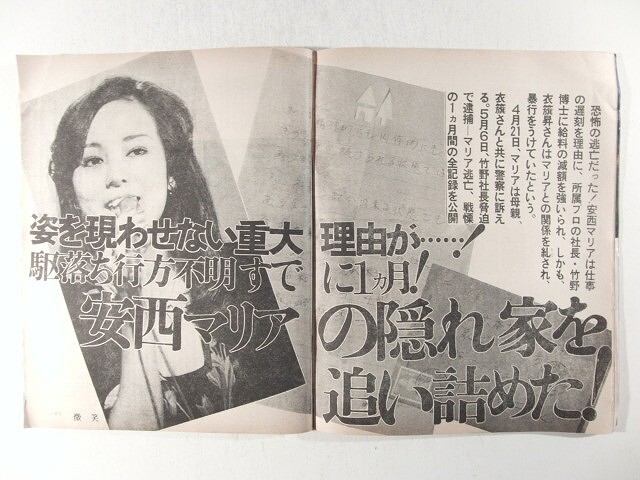 恐怖の逃亡だった！安西マリアは仕事
の遅刻を理由に、所属プロの社長・竹野
博士に給料の減額を強いられ、しかも、
衣籏昇さんはマリアとの関係を糺され、
暴行をうけていたという。
4月21日、マリアは母親、
衣籏さんと共に警察に訴え
る。5月6日、竹野社長脅迫
で逮捕―マリア逃亡、戦慄
の1ヵ月間の全記録を公開
姿を現わせない重大理由が……！
駆落ち行方不明すでに1ヵ月！
安西マリアの隠れ家を
追い詰めた！
微笑